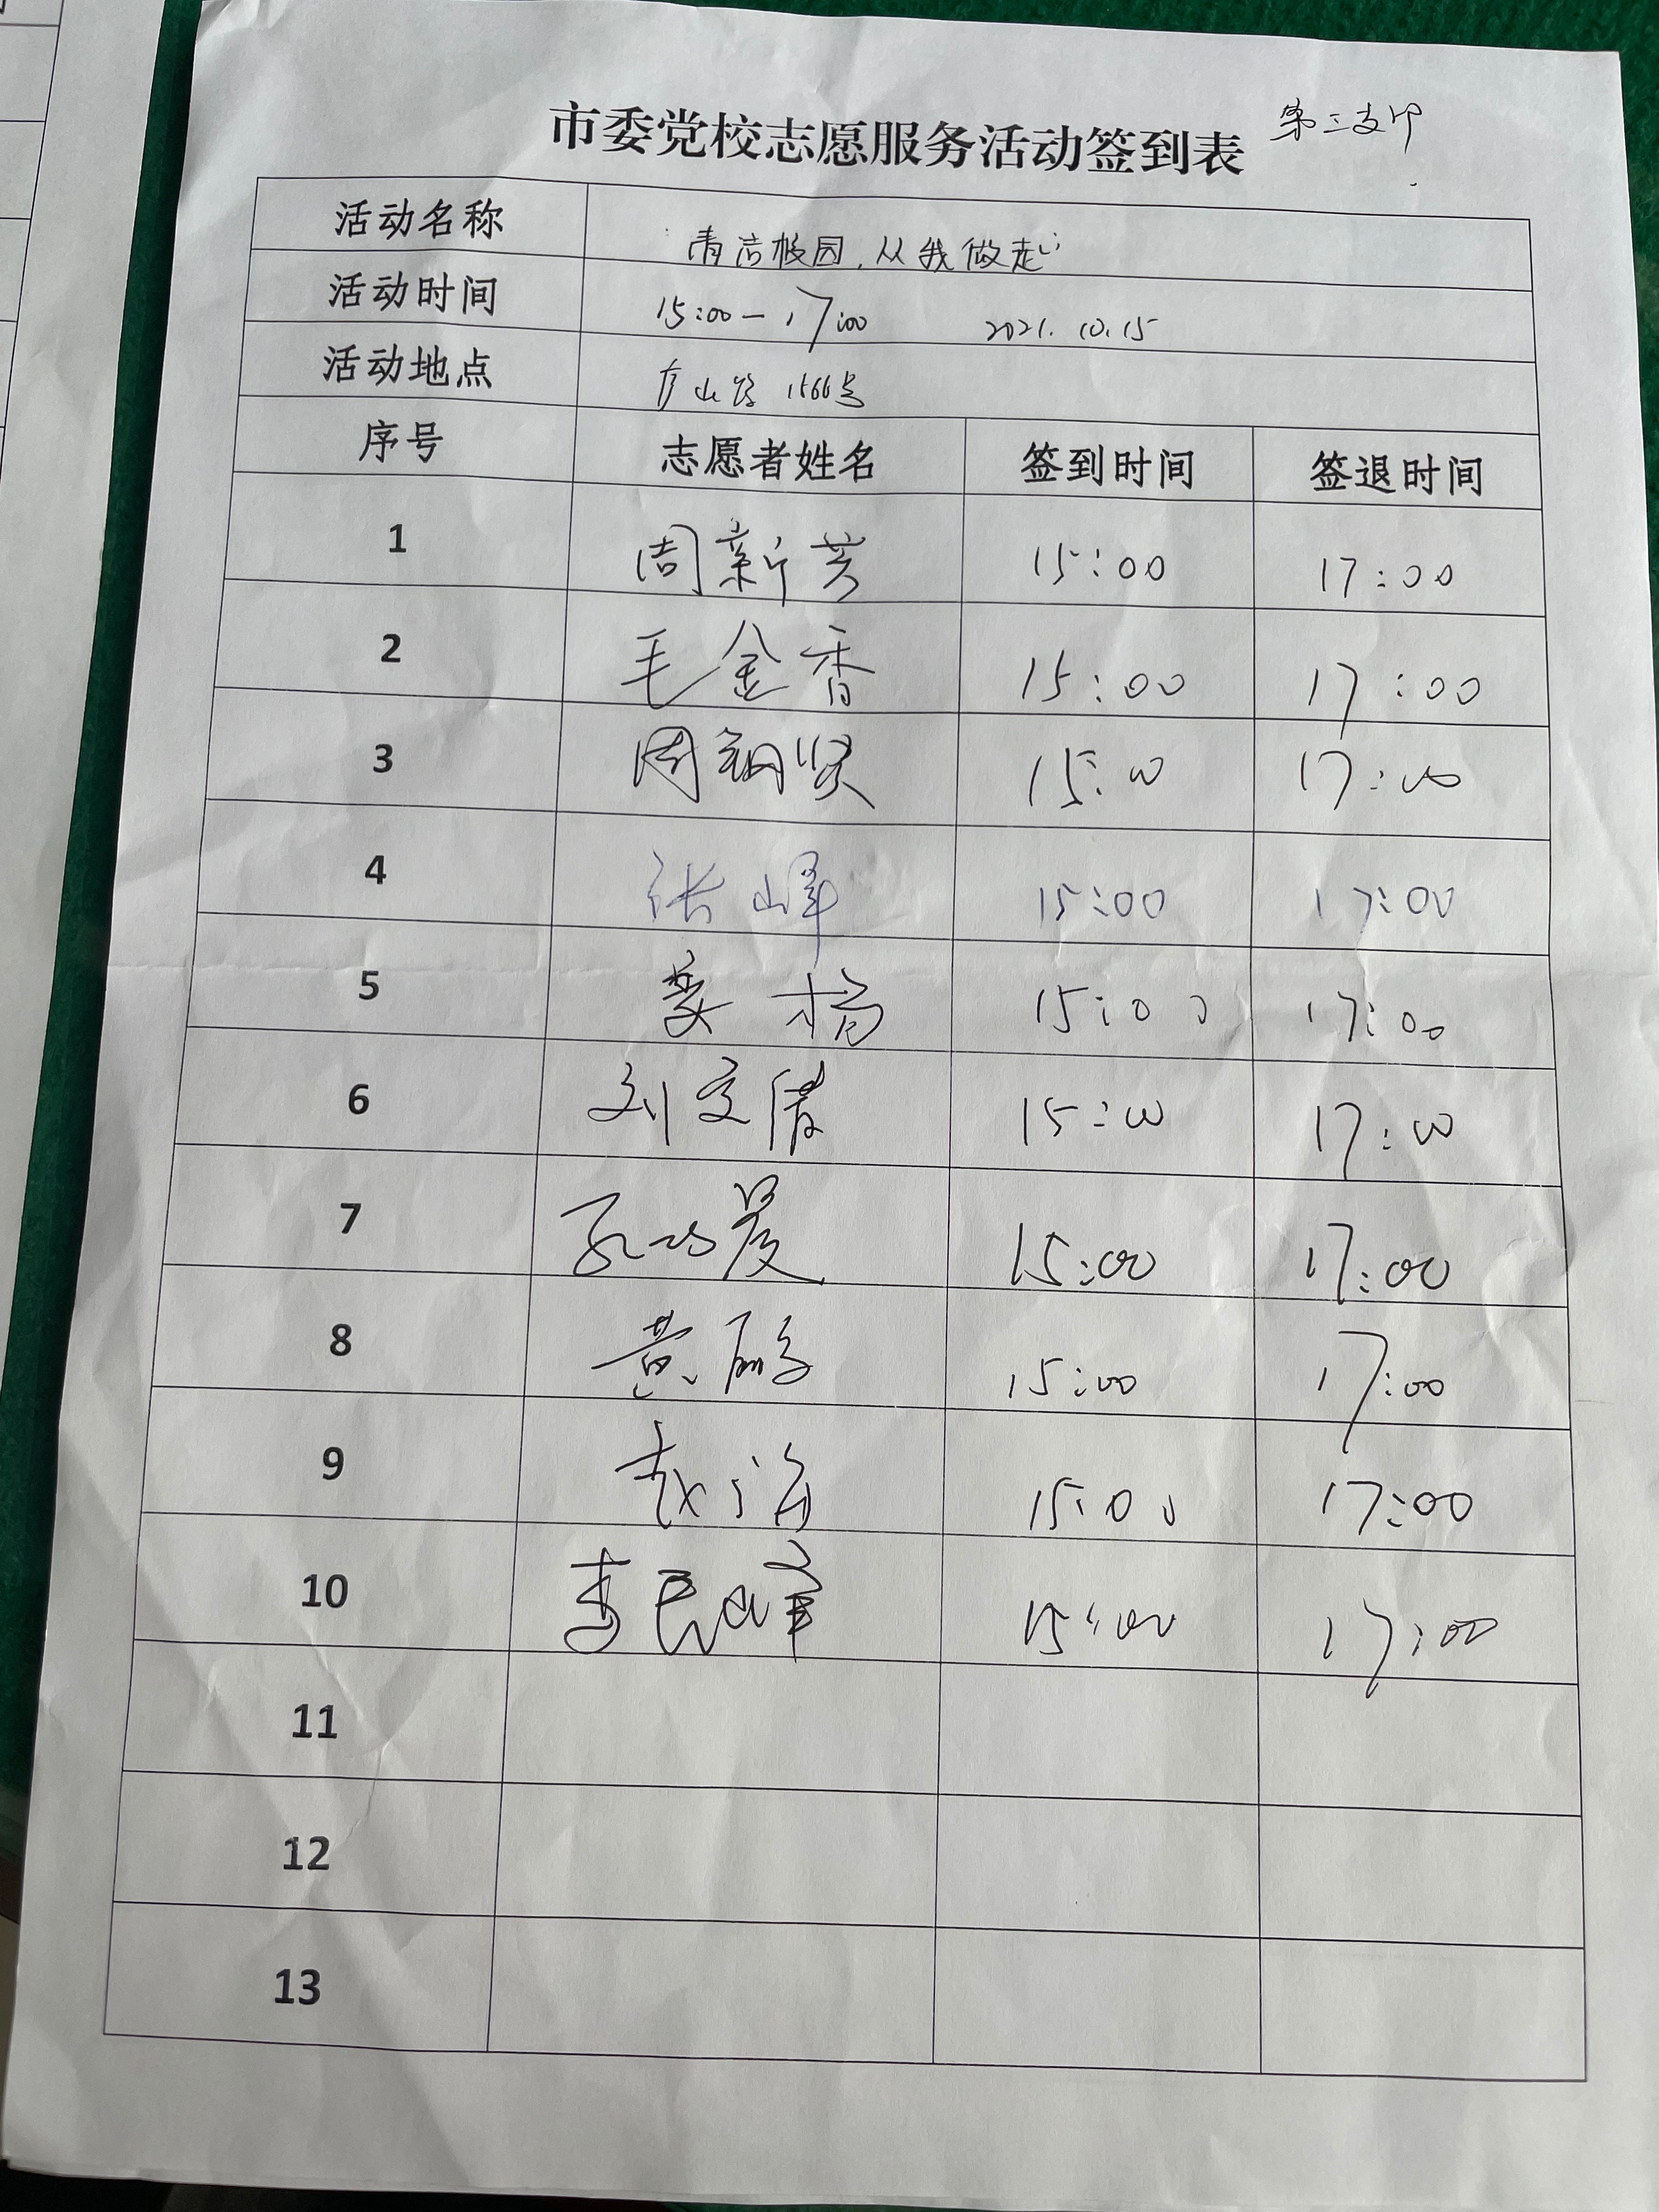 市委党校志愿服务活动签到表 第三支部
活动名称 清洁校园,从我做起
活动时间 15:00—17:00 2021.10.15
活动地点 1566号
序号 志愿者姓名 签到时间 签退时间
1 周新芳 15:00 17:00
2 毛金香 15:00 17:00
3 周钢贤 15:00 17:00
4 张峰 15:00 17:00
5 姜杨 15:00 17:00
6 刘文倩 15:00 17:00
7 15:00 17:00
8 黄鹂 15:00 17:00
9 赵海 15:00 17:00
10 李民峰 15:00 17:00
11
12
13